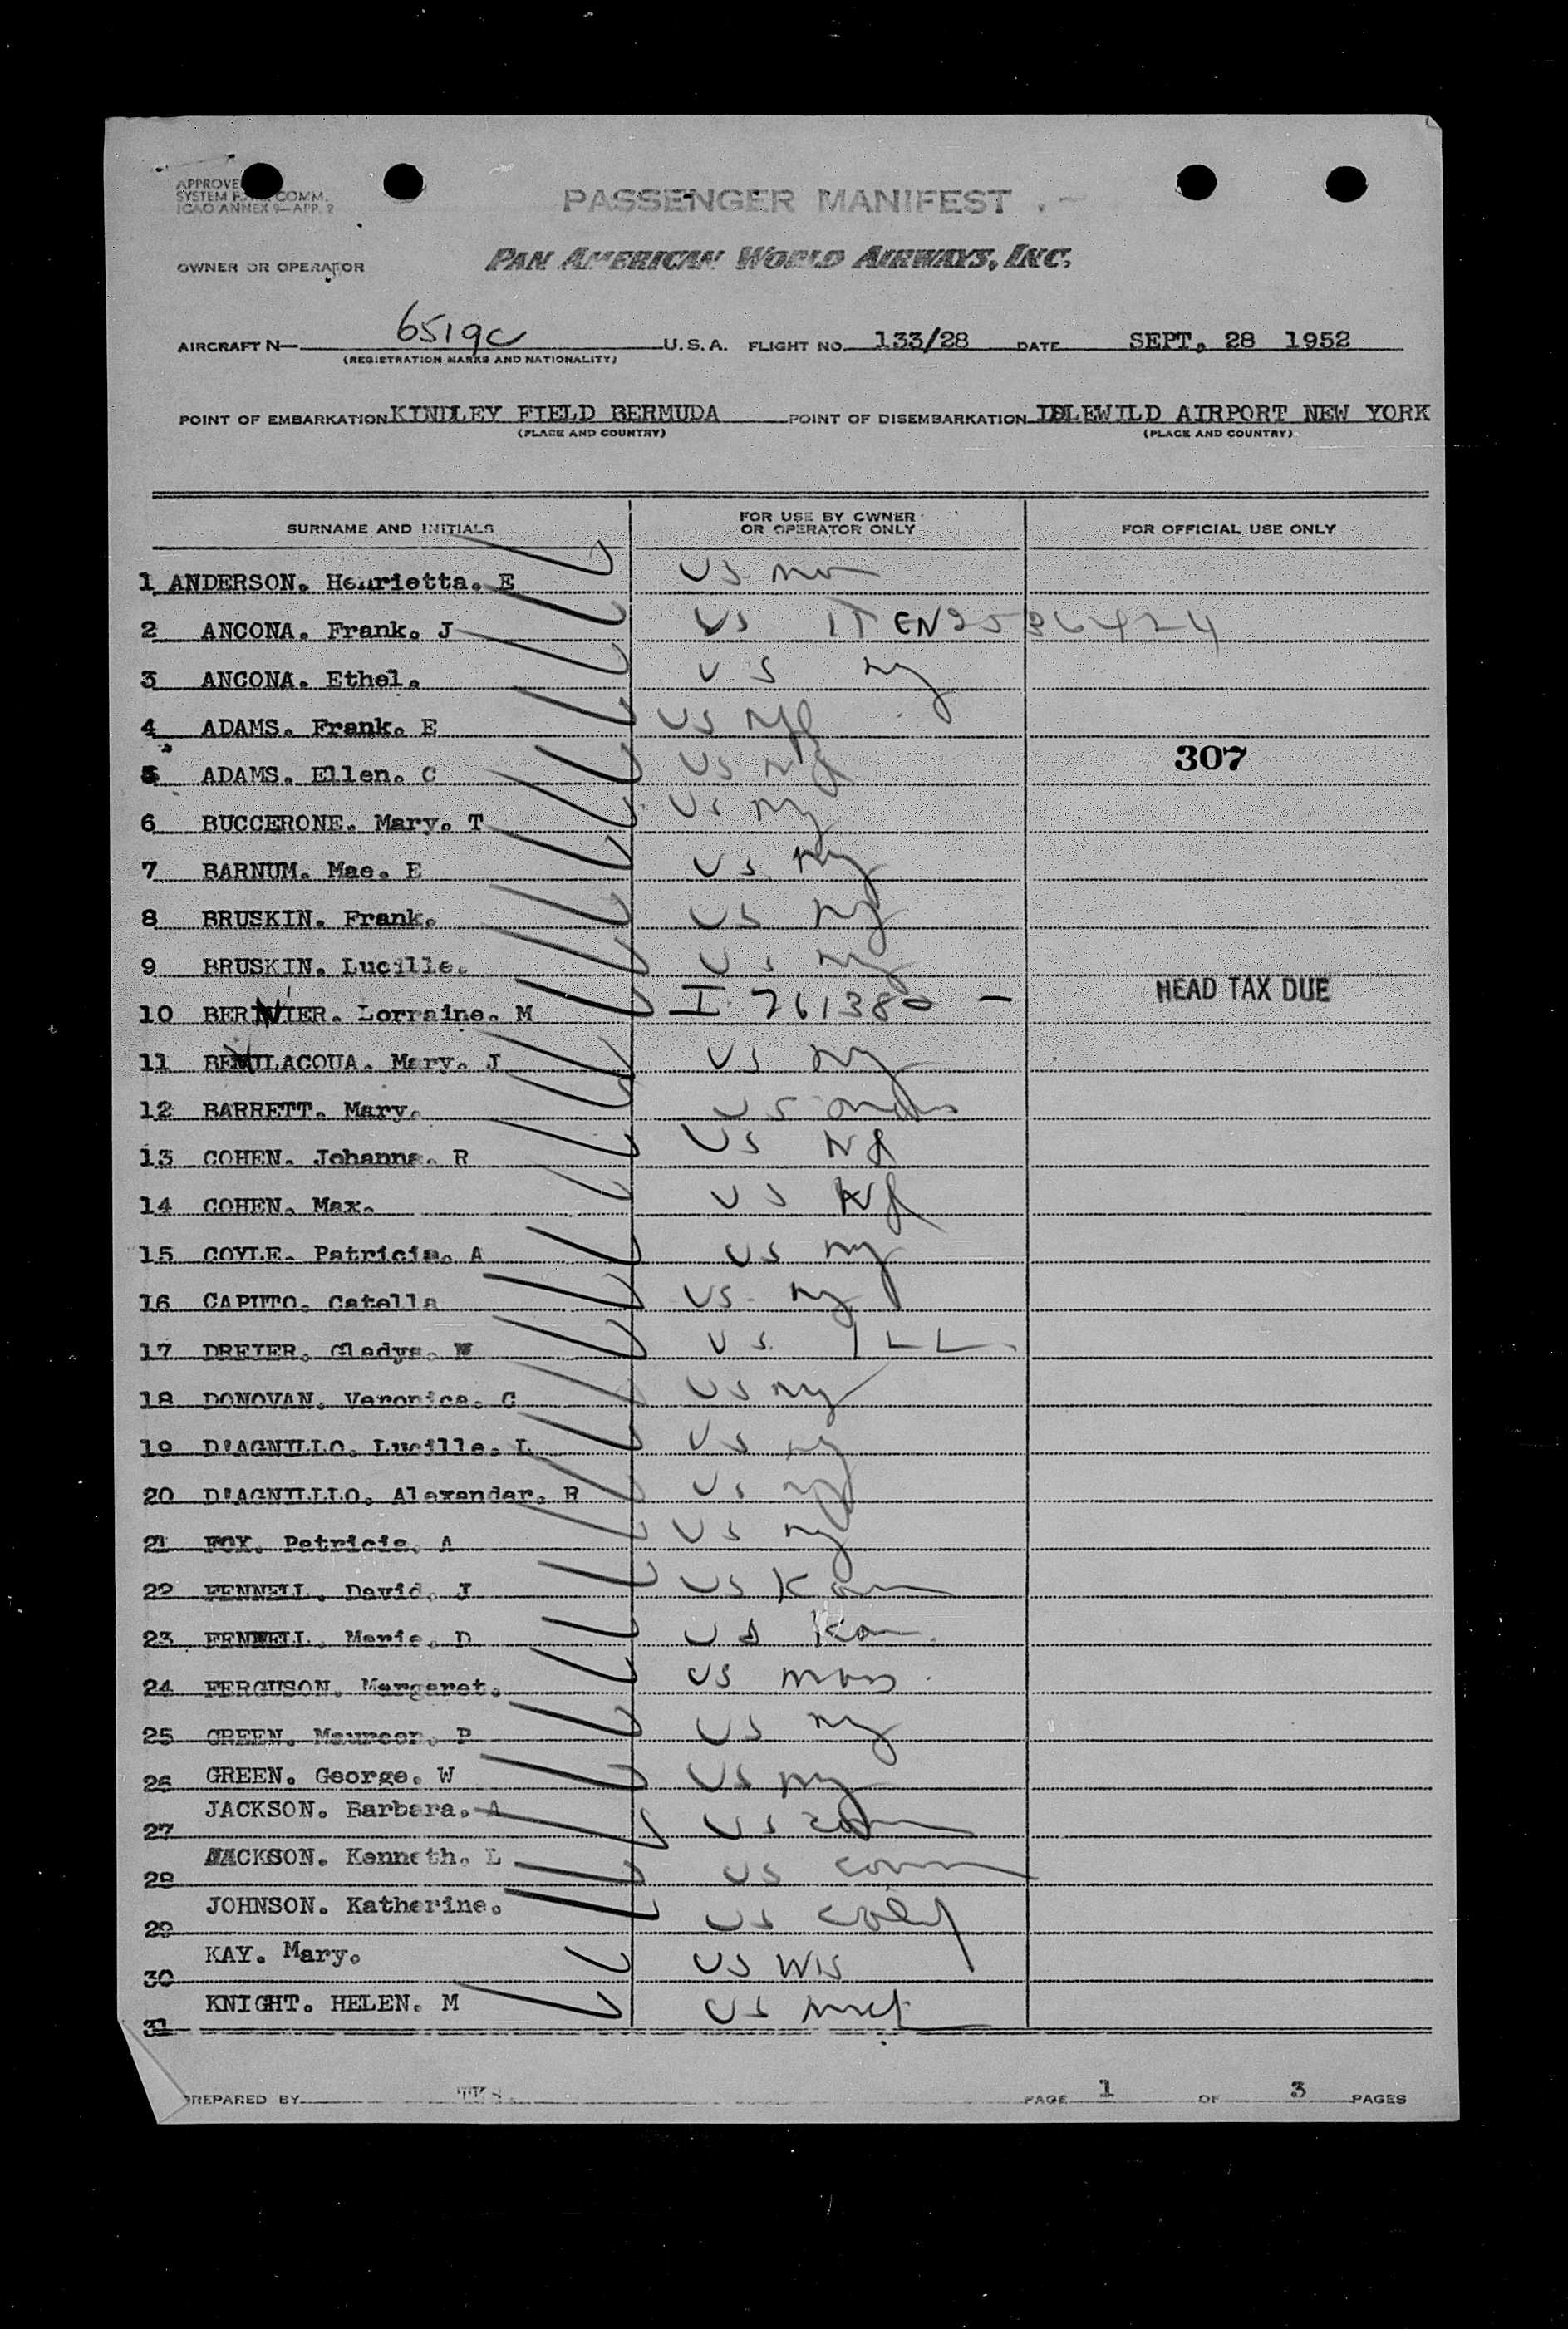 APPROVE
SYSTEM F COMM.
ICAO ANNEX 9—APP. 2
PASSENGER MANIFEST
OWNER OR OPERATOR PAN AMERICAN WORLD AIRWAYS, INC.
AIRCRAFT N— 6519C U.S.A. FLIGHT NO. 133/28 DATE SEPT. 28 1952
(REGISTRATION MARKS AND NATIONALITY)
POINT OF EMBARKATION KINDLEY FIELD BERMUDA POINT OF DISEMBARKATION IDLEWILD AIRPORT NEW YORK
(PLACE AND COUNTRY) (PLACE AND COUNTRY)
SURNAME AND INITIALS FOR USE BY OWNER OR OPERATOR ONLY FOR OFFICIAL USE ONLY
1 ANDERSON. Henrietta. E US
2 ANCONA. Frank. J US IT EN
3 ANCONA. Ethel. US NY
4 ADAMS. Frank. E US NJ
307
5 ADAMS. Ellen. C US NJ
6 BUCCERONE. Mary. T US NY
7 BARNUM. Mae. E US NY
8 BRUSKIN. Frank. US NY
9 BRUSKIN. Lucille. US NY
HEAD TAX DUE
10 BERNIER. Lorraine. M I 761380 —
11 BEVILACQUA. Mary. J US NY
12 BARRETT. Mary. US
13 COHEN. Johanna. R US NJ
14 COHEN. Max. US NJ
15 COYLE. Patricia. A US NY
16 CAPUTO. Catella US NY
17 DREIER. Gladys. W US ILL
18 DONOVAN. Veronica. C US NY
19 D'AGNILLO. Lucille. L US NY
20 D'AGNILLLO. Alexander. R US NY
21 FOX. Patricia. A US NY
22 FENNELL. David. J US Kan
23 FENNELL. Marie. D US Kan
24 FERGUSON. Margaret. US Mass
25 GREEN. Maureen. P US NY
26 GREEN. George. W US NY
27 JACKSON. Barbara. A US Conn
28 JACKSON. Kenneth. L US Conn
29 JOHNSON. Katherine. US Calif
30 KAY. Mary. US WIS
31 KNIGHT. HELEN. M US Mich
PREPARED BY PAGE 1 OF 3 PAGES